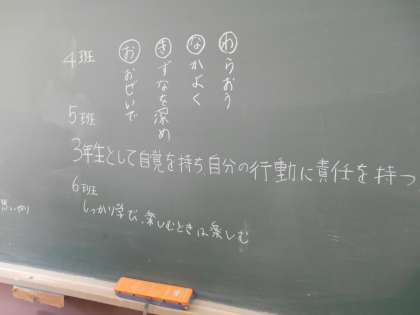 4班
わらおう
なかよく
きずなを深め
おおぜいで
5班
3年生として自覚を持ち自分の行動に責任を持つ
6班
しっかり学び、楽しむときは楽しむ
思いやり